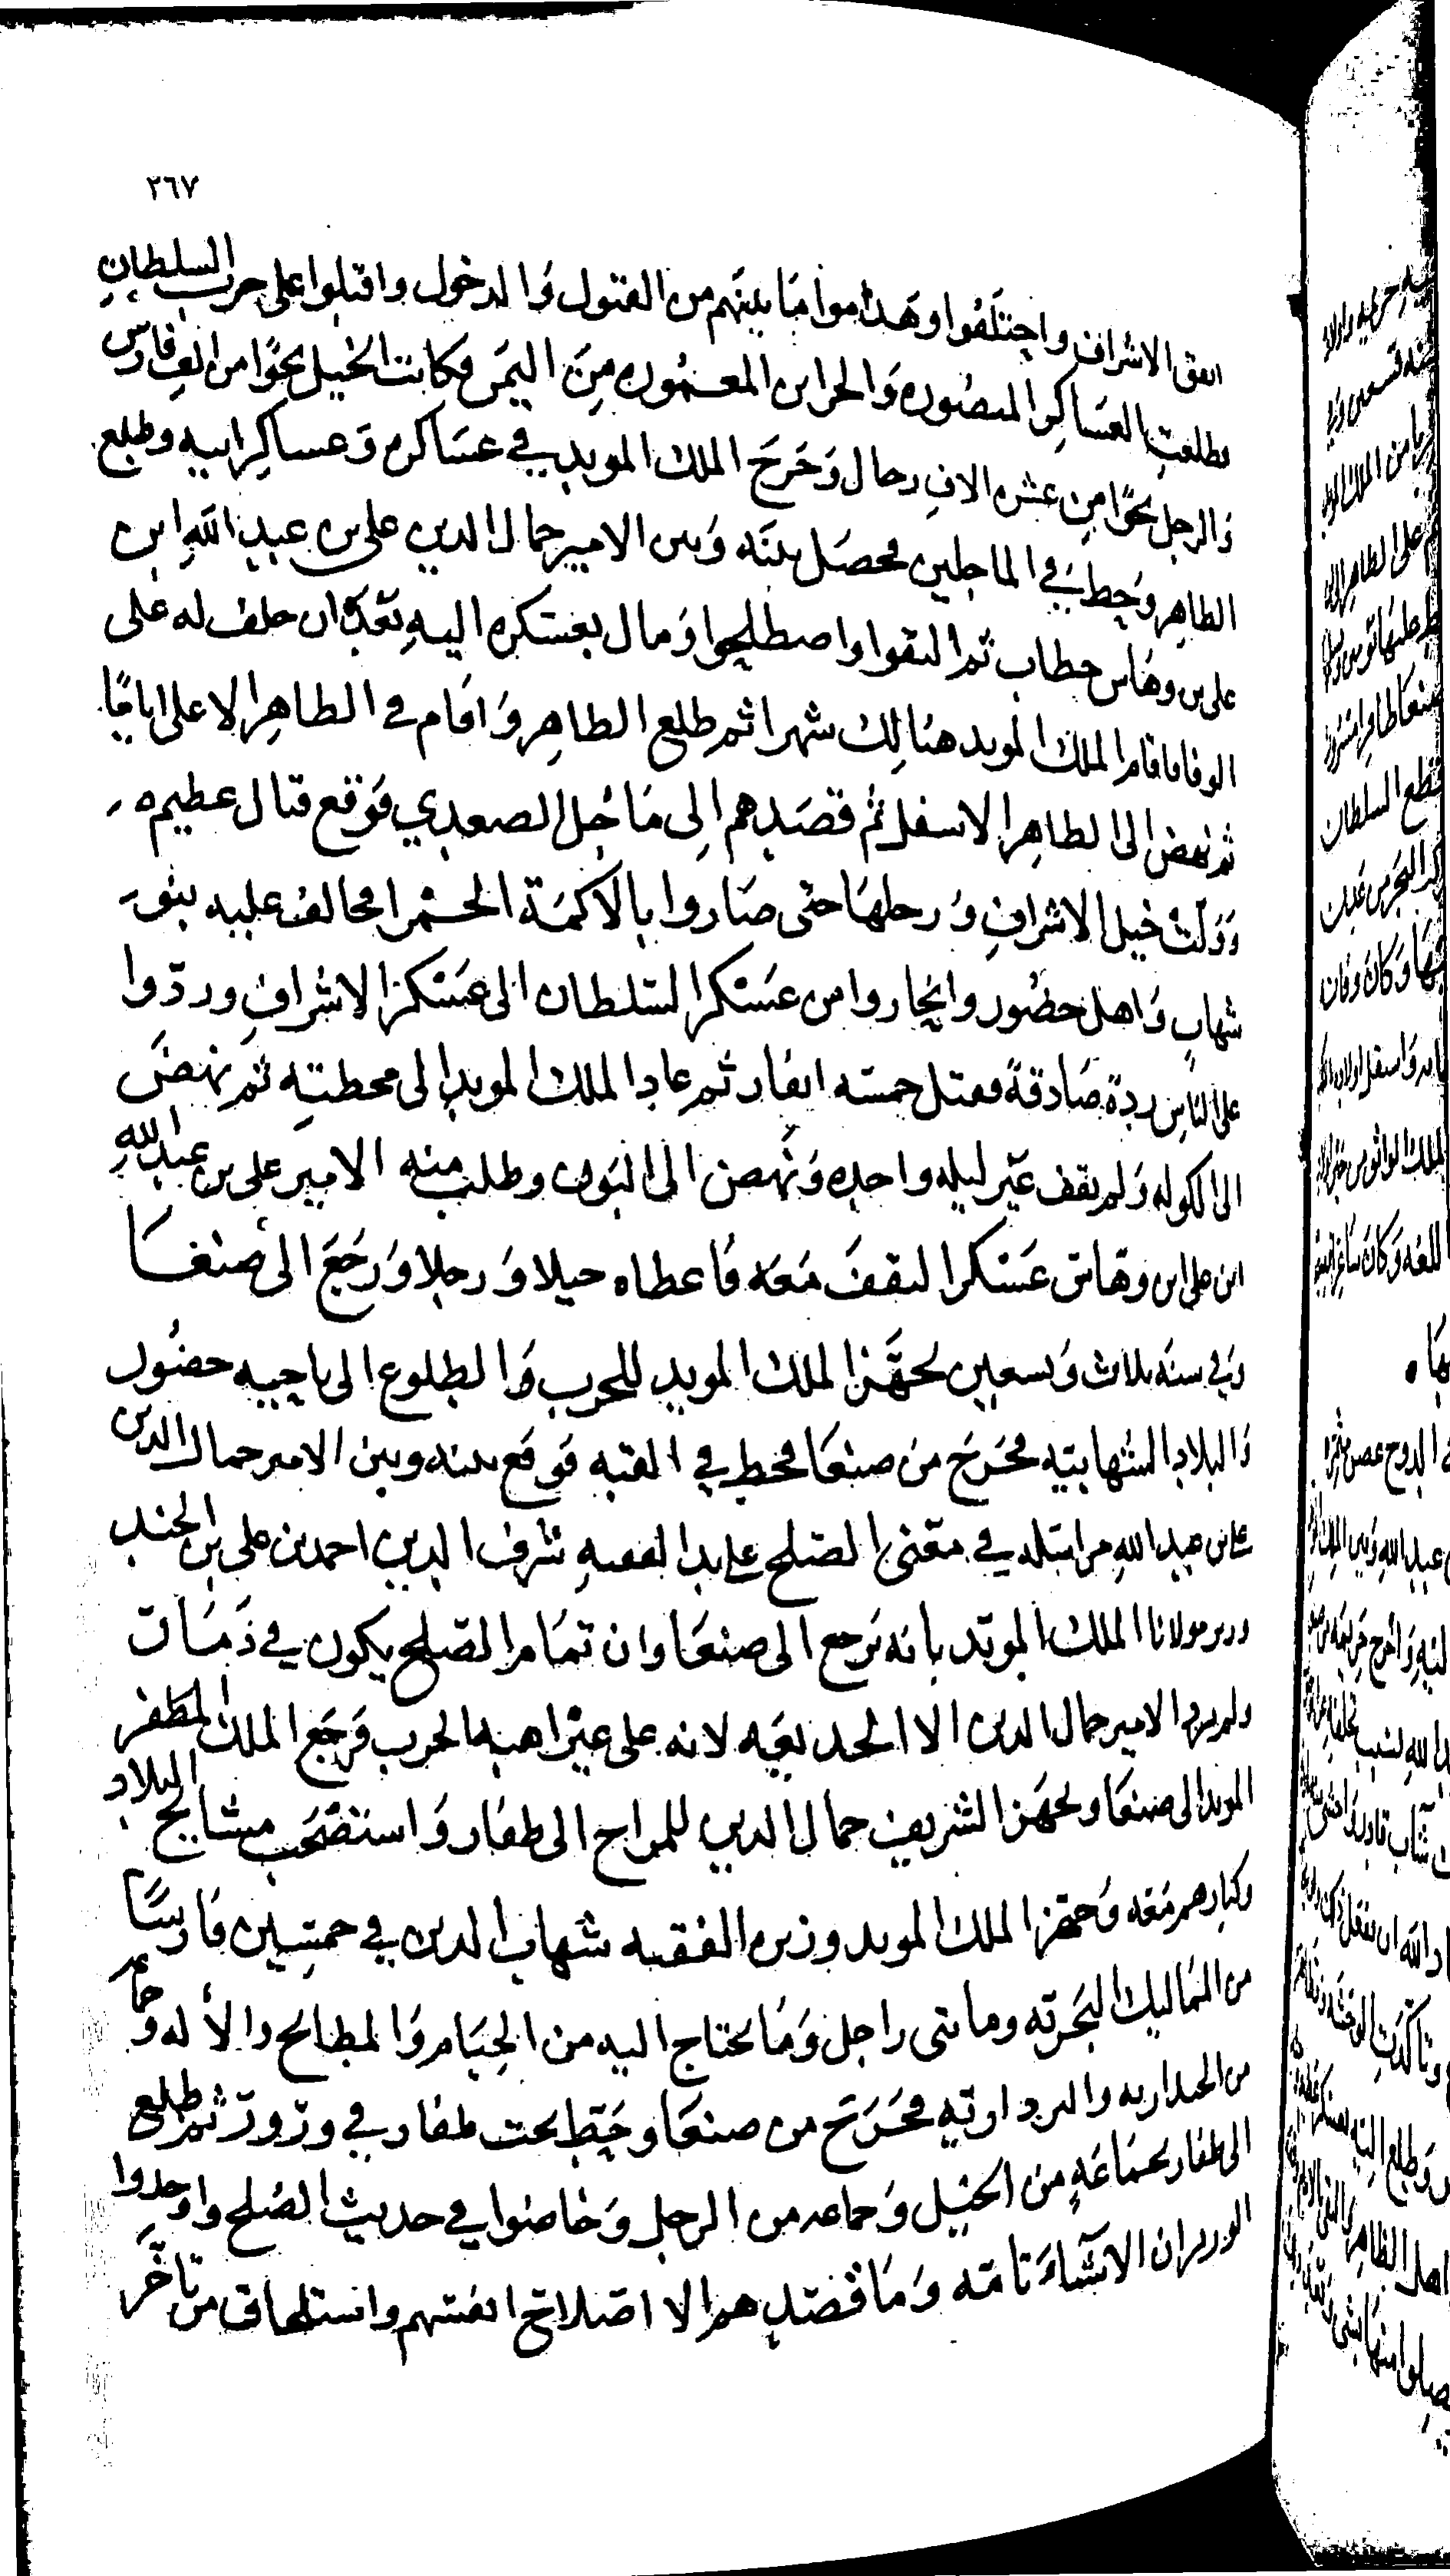 ٢٦٧
اتفق الاشراف واجتلفوا وهداموا ما بينهم من القتول والدخول واقبلوا على حرب السلطان
فطلعت العساكر المنصوره والخزاين المعموره من اليمن فكانت الخيل نحوا من الف فارس
والرجل نحوا من عشره الاف رجال وخرج الملك المويد في عساكره وعساكر ابيه وطلع
الطاهر وحط في الماجلين فحصل بينه وبين الامير جمال الدين علي بن عبد الله ابن
علي بن وهاس خطاب ثم التقوا واصطلحوا ومال بعسكره اليه بعد ان حلف له على
الوفا فاقام الملك المويد هنالك شهرا ثم طلع الطاهر واقام في الطاهر الاعلى اياما
ثم نهض الى الطاهر الاسفل ثم قصدهم الى ماجل الصعدي فوقع قتال عظيم
وولت خيل الاشراف ورجلها حتى صاروا بالاكمة الحمرا فخالف عليه بنو
شهاب واهل حضور وانحاروا من عسكر السلطان الى عسكر الاشراف وردوا
على الناس ردة صادقة فقتل خمسه انفار ثم عاد الملك المويد الى محطته ثم نهض
الى الكوله ولم يقف غير ليله واحده ونهض الى البون وطلب منه الامير علي بن عبد الله
ابن علي ابن وهاس عسكرا ليقف معه فاعطاه خيلا ورجلا ورجع الى صنعا
وفي سنه ثلاث وتسعين تجهز الملك المويد للحرب والطلوع الى ناحيه حضور
والبلاد الشهابيه فخرج من صنعا فحط في القبه فوقع بينه وبين الامير جمال الدين
علي بن عبد الله مراسله في معنى الصلح على يد الفقيه شرف الدين احمد بن علي بن الجنيد
وزير مولانا الملك المويد بانه يرجع الى صنعا وان تمام الصلح يكون في ذمات
ولم يرد الامير جمال الدين الا الخديعه لانه على غير اهبه الحرب فرجع الملك المظفر
المويد الى صنعا وتجهز الشريف جمال الدين للمراح الى ظفار واستصحب مشايخ البلاد
وكبارهم معه وجهز الملك المويد وزيره الفقيه شهاب الدين في خمسين فارسا
من المماليك البحريه ومايتي راجل وما يحتاج اليه من الخيام والمطابخ والاله وجماعه
من الجنداريه والبرد اريه فخرج من صنعا وحط تحت ظفار في ورور ثم طلع
الى ظفار بجماعه من الخيل وجماعه من الرجل وخاضوا في حديث الصلح واوجدوا
الوزير ان الاشياء تامه وما قصدهم الا اصلاح انفسهم واستلحاق من تاخر